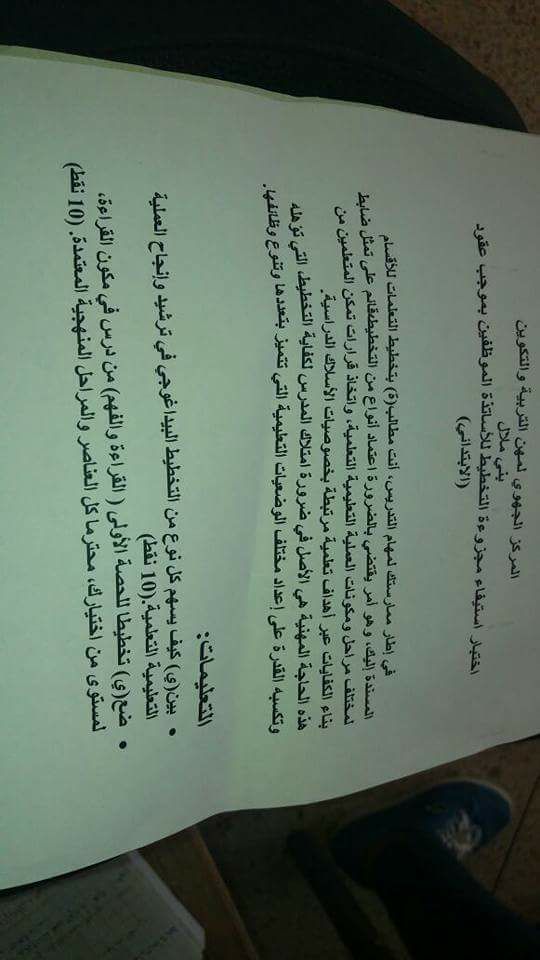 المركز الجهوي لمهن التربية والتكوين
بني ملال
اختبار استيفاء مجزوءة التخطيط للأساتذة الموظفين بموجب عقود
(الابتدائي)
في إطار ممارستك لمهام التدريس، أنت مطالب(ة) بتخطيط التعلمات للأقسام
المسندة إليك، وهو أمر يقتضي بالضرورة اعتماد أنواع من التخطيط، قائم على تمثل ضابط
لمختلف مراحل ومكونات العملية التعليمية التعلمية، واتخاذ قرارات تمكن المتعلمين من
بناء الكفايات عبر أهداف تعلمية مرتبطة بخصوصيات الأسلاك الدراسية.
هذه الحاجة المهنية هي الأصل في ضرورة امتلاك المدرس لكفاية التخطيط، التي تؤهله
وتكسبه القدرة على إعداد مختلف الوضعيات التعليمية التي تتميز بتعددها وتنوع وظائفها.
التعليمات:
• بين(ي) كيف يسهم كل نوع من التخطيط البيداغوجي في ترشيد وإنجاح العملية
التعليمية التعلمية.(10 نقط)
• ضع(ي) تخطيطا للحصة الأولى (القراءة والفهم) من درس في مكون القراءة،
لمستوى من اختيارك، محترما كل العناصر والمراحل المنهجية المعتمدة. (10 نقط)